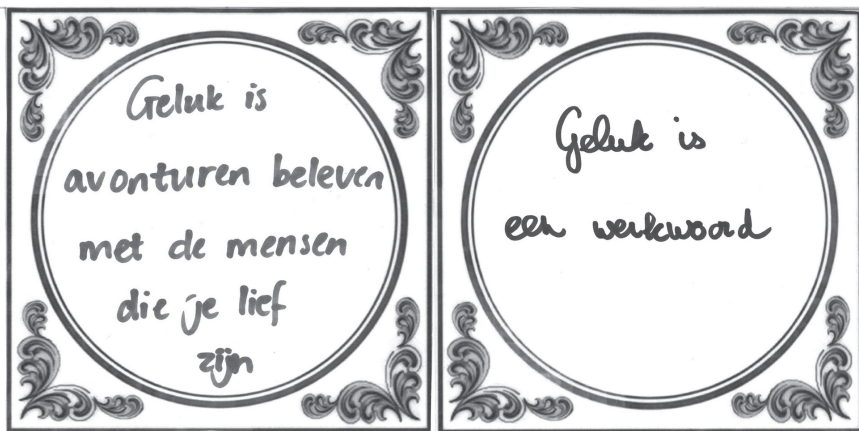 Geluk is
avonturen beleven
met de mensen
die je lief
zijn
Geluk is
een werkwoord